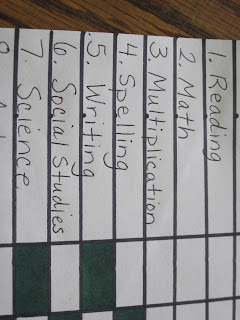 1. Reading
2. Math
3. Multiplication
4. Spelling
5. Writing
6. Social Studies
7. Science